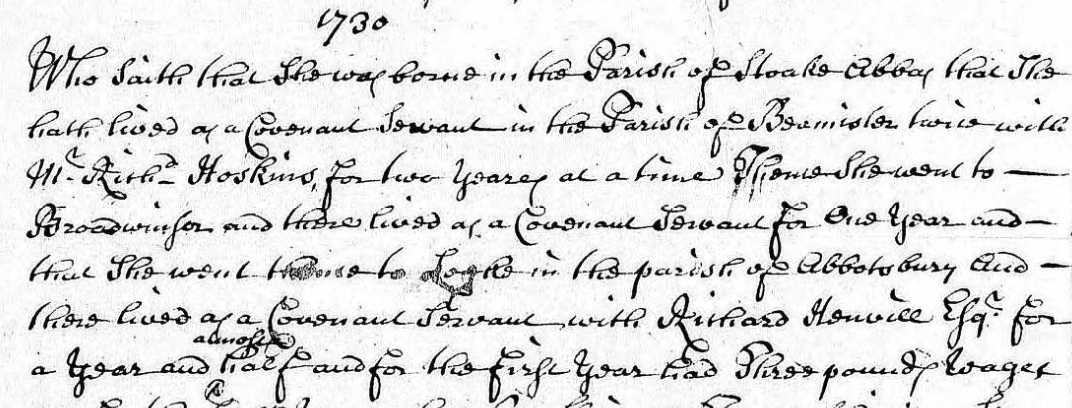 1730
Who Saith that She was borne in the Parish of Stoake Abbas that She
hath lived as a Covenant Servant in the Parish of Beamister twice with
Mr. Richd. Hoskins, for two Yeares at a time Thence She went to
Broadwinsor and there lived as a Covenant Servant for One Year and
that She went thence to in the parish of Abbotsbury And
there lived as a Covenant Servant with Richard Henvill Esqr. for
almost
a Year and half and for the first Year had Three pounds Wages